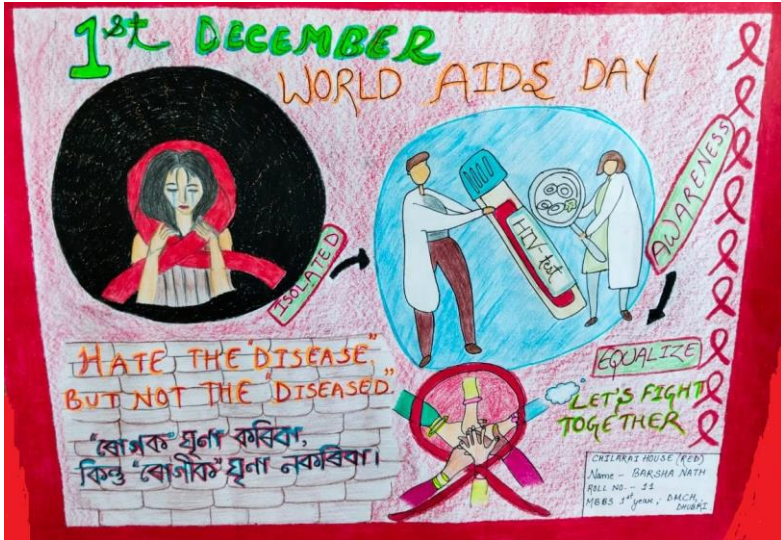 1st DECEMBER
WORLD AIDS DAY
ISOLATED
HIV-test
AWARENESS
EQUALIZE
LET'S FIGHT
TOGETHER
HATE THE "DISEASE",
BUT NOT THE "DISEASED."
"ৰোগক" ঘৃণা কৰিবা,
কিন্তু "ৰোগীক" ঘৃণা নকৰিবা।
CHILARAI HOUSE (RED)
Name - BARSHA NATH
ROLL NO. - 11
MBBS 1st year, DMCH,
DHUBRI